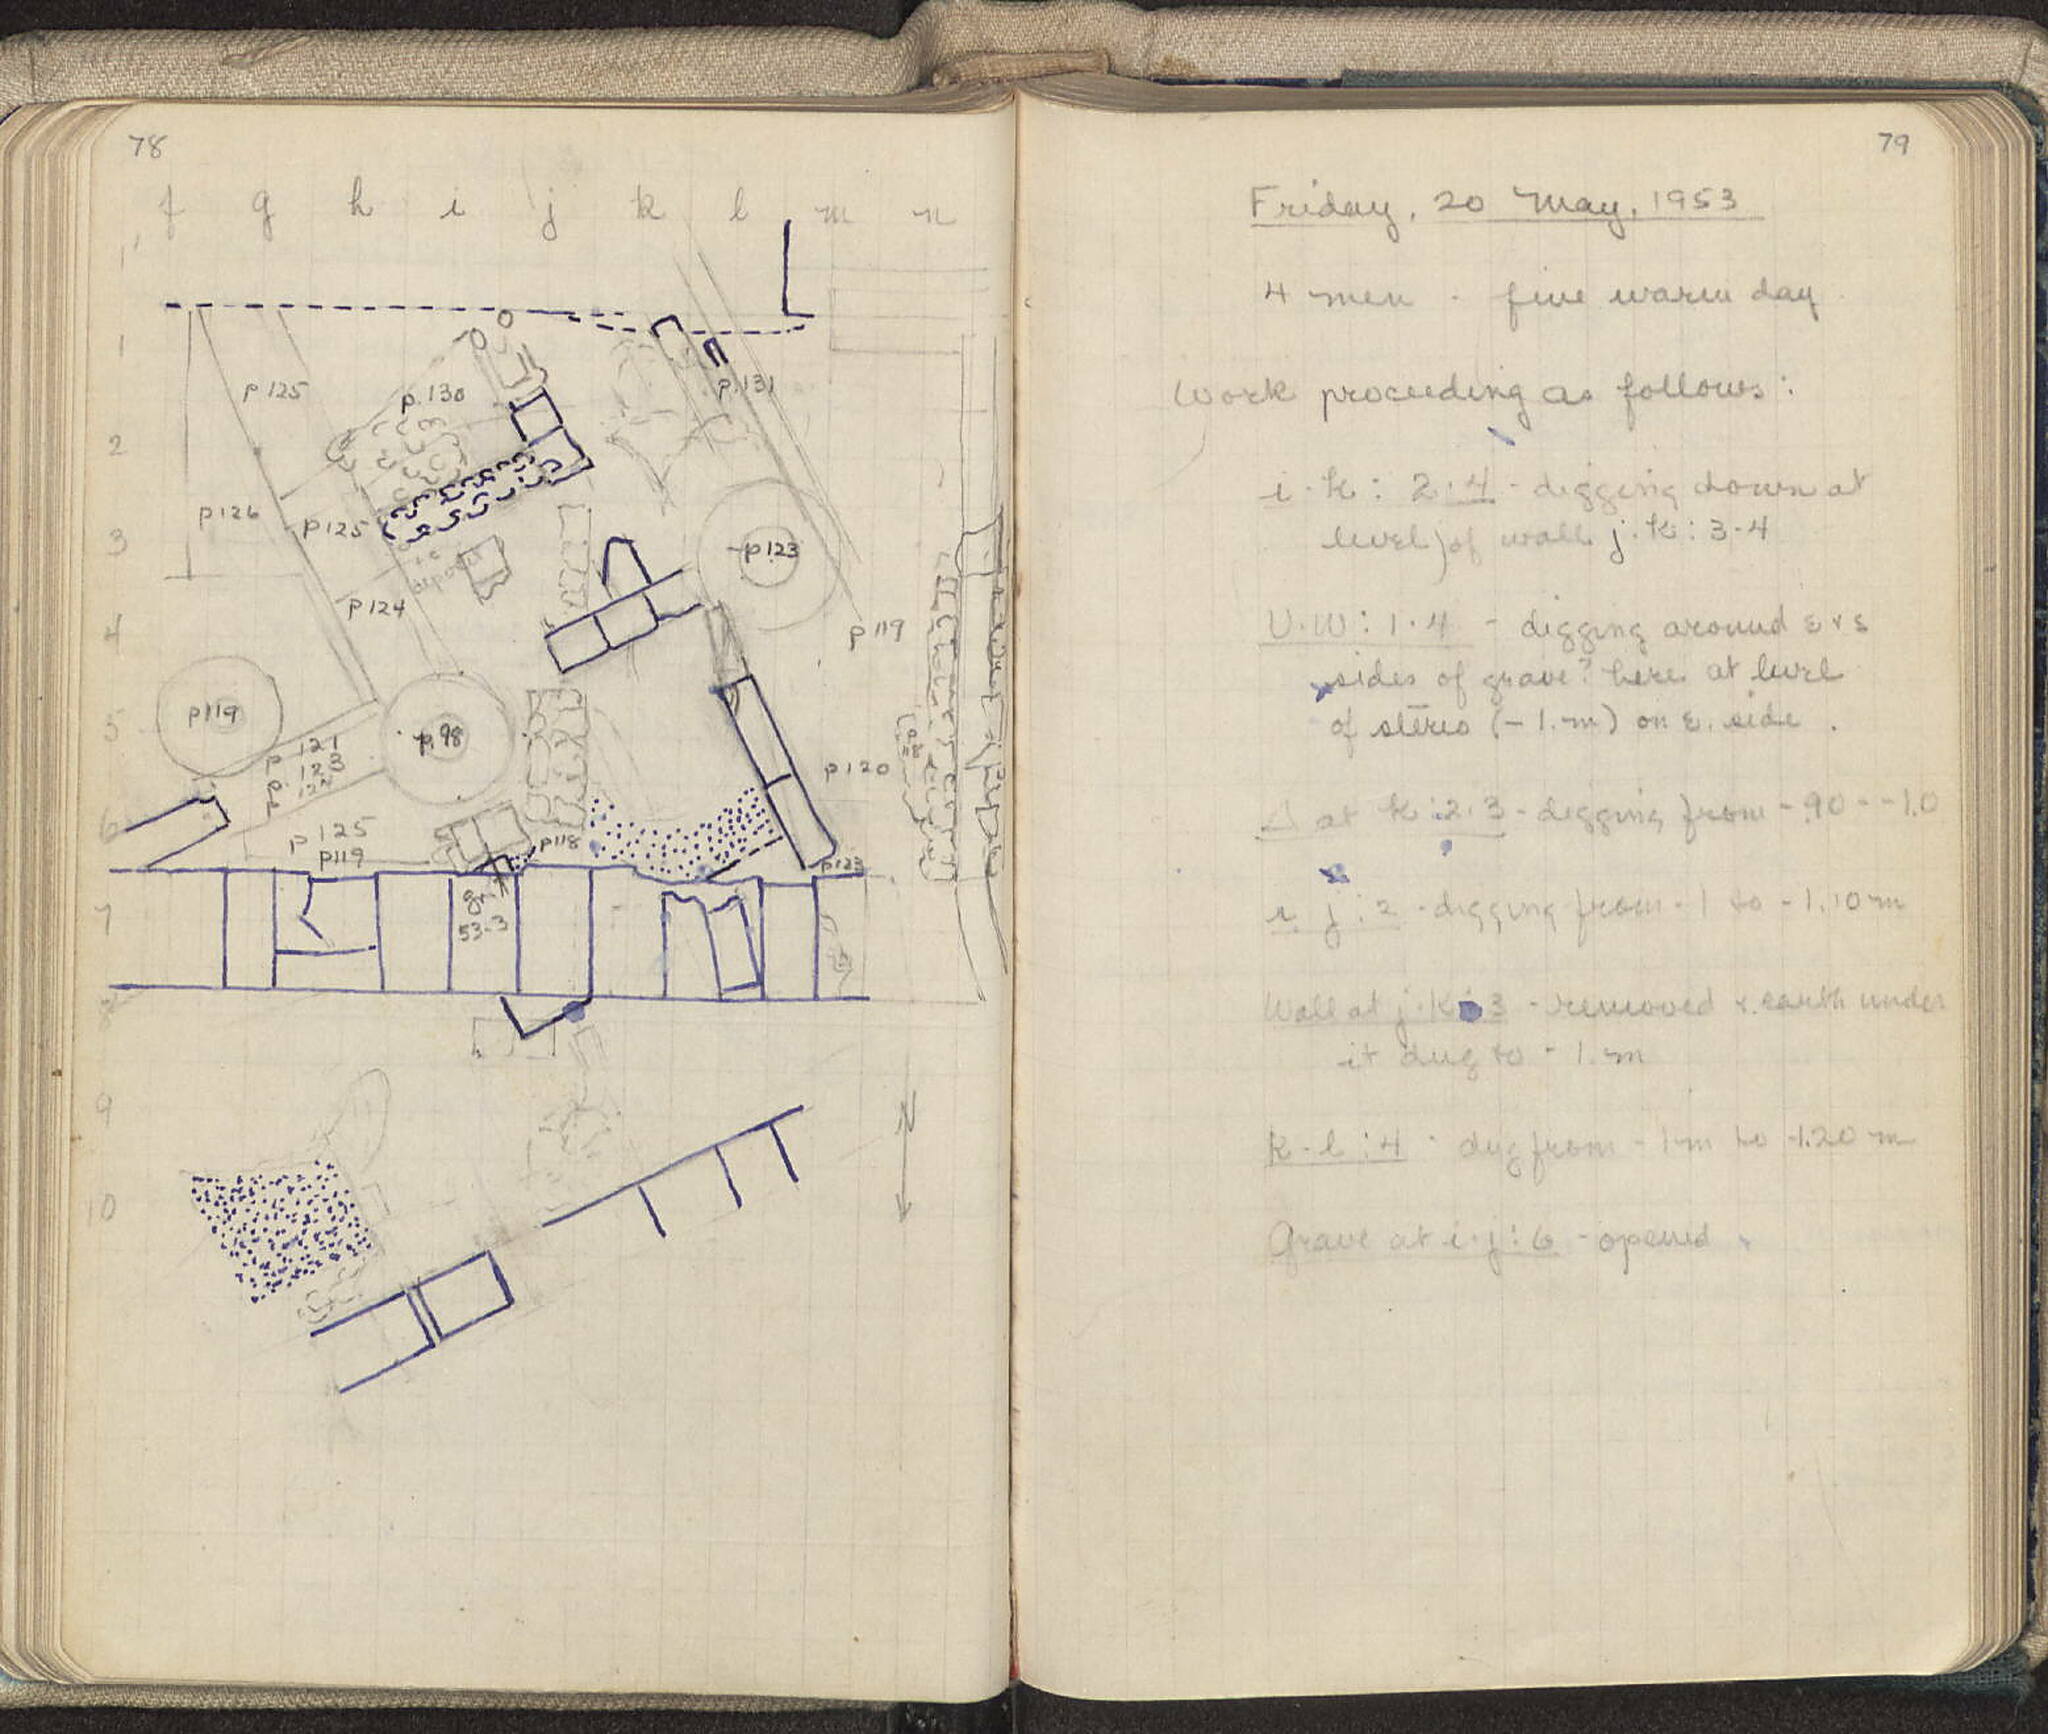 78
f g h i j k l m n
1
1
2
3
4
5
6
7
8
9
10
p 125
p. 130
p. 131
p 126
p 125
deposit
p 123
p 124
p 119
p 119
p. 98
p 121
p 123
p 120
p 125
p 119
p 118
p 123
gr.
53-3
N
79
Friday, 20 May, 1953
4 men - fine warm day
Work proceeding as follows:
i-k: 2-4 - digging down at
level of wall j-k: 3-4
U-W: 1-4 - digging around E & S
sides of grave? here at level
of stereo (-1.m) on E. side.
at k: 2-3 - digging from -.90 - -1.0
i j: 2 - digging from -1 to -1.10 m
Wall at j-k: 3 - removed & earth under
it dug to -1.m
k-l: 4 - dug from -1 m to -1.20 m
Grave at i-j: 6 - opened